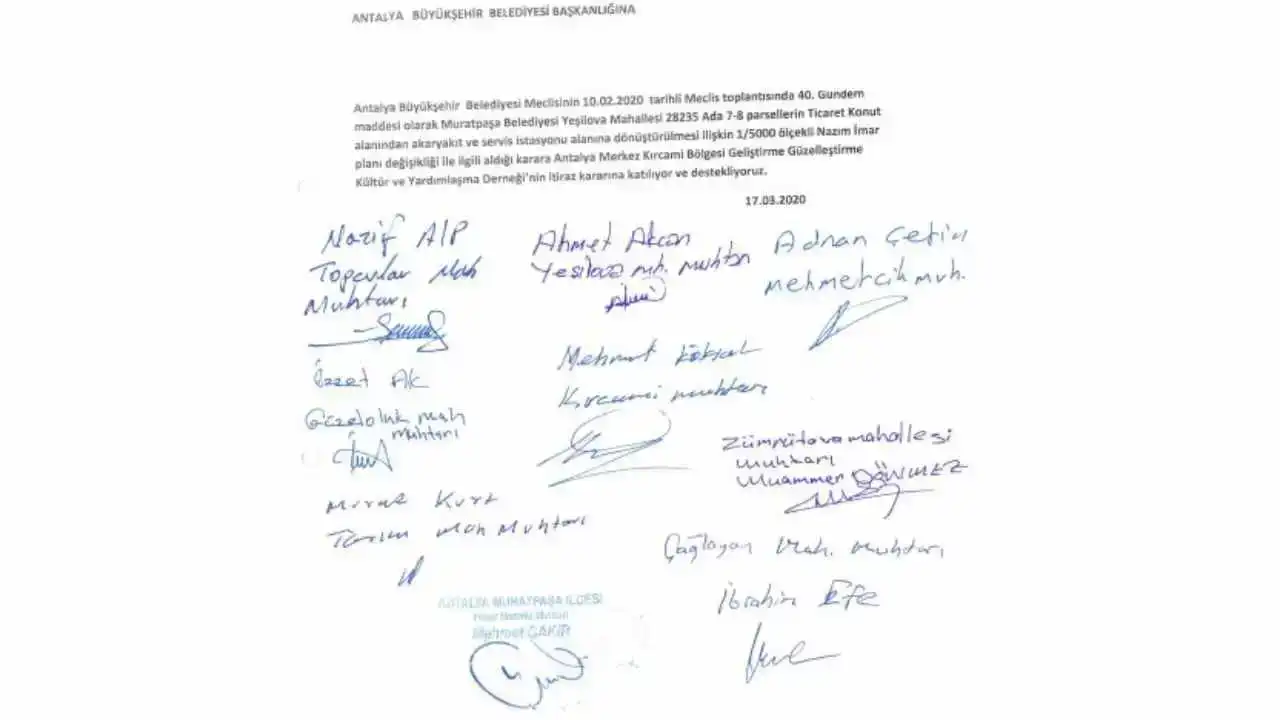 ANTALYA BÜYÜKŞEHİR BELEDİYESİ BAŞKANLIĞINA
Antalya Büyükşehir Belediyesi Meclisinin 10.02.2020 tarihli Meclis toplantısında 40. Gündem
maddesi olarak Muratpaşa Belediyesi Yeşilova Mahallesi 28235 Ada 7-8 parsellerin Ticaret Konut
alanından akaryakıt ve servis istasyonu alanına dönüştürülmesi ilişkin 1/5000 ölçekli Nazım İmar
planı değişikliği ile ilgili aldığı karara Antalya Merkez Kırcami Bölgesi Geliştirme Güzelleştirme
Kültür ve Yardımlaşma Derneği'nin itiraz kararına katılıyor ve destekliyoruz.
17.03.2020
Nazif Alp
Topçular Mah
Muhtarı
Ahmet Akcan
Yeşilova mh. muhtarı
Adnan Çetin
Mehmetcik muh.
İzzet Ak
Güzeloluk mah
muhtarı
Mehmet Köksal
Kırcami muhtarı
Zümrütova mahallesi
muhtarı
Muammer DÖNMEZ
Murat Kurt
Tarım Mah Muhtarı
Çağlayan Mah. Muhtarı
İbrahim Efe
ANTALYA MURATPAŞA İLÇESİ
Mehmet ÇAKIR